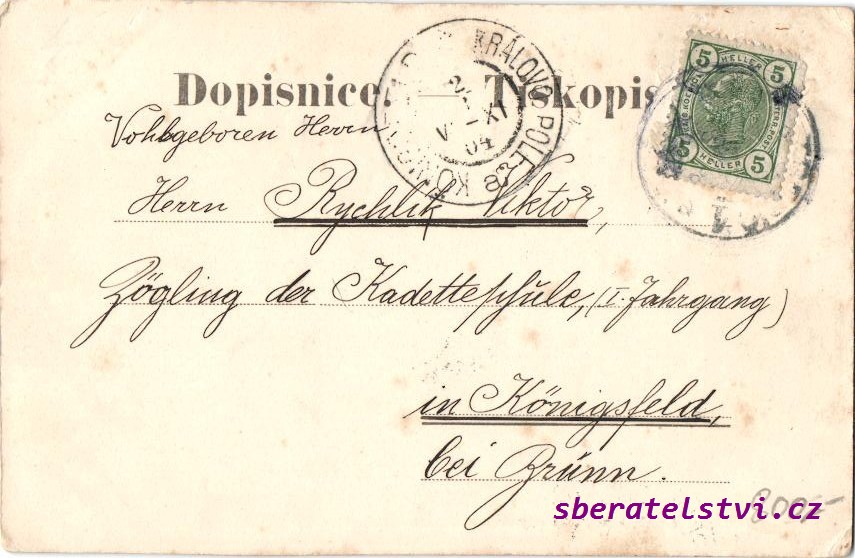 Dopisnice. — Tiskopis
KRÁLOVO POLE
XI
04
5 HELLER 5
5 HELLER 5
Vohlgeboren Herrn
Herrn Rychlik Viktor,
Zögling der Kadetteschule, (I. Jahrgang)
in Königsfeld,
bei Brünn.
sberatelstvi.cz